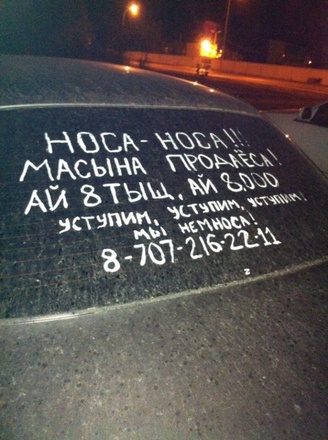 НОСА-НОСА!!!
МАСЫНА ПРОДАЁСА!
АЙ 8ТЫЩ, АЙ 8,000
УСТУПИМ, УСТУПИМ, УСТУПИМ!
МЫ НЕМНОСА!
8-707-216-22-11